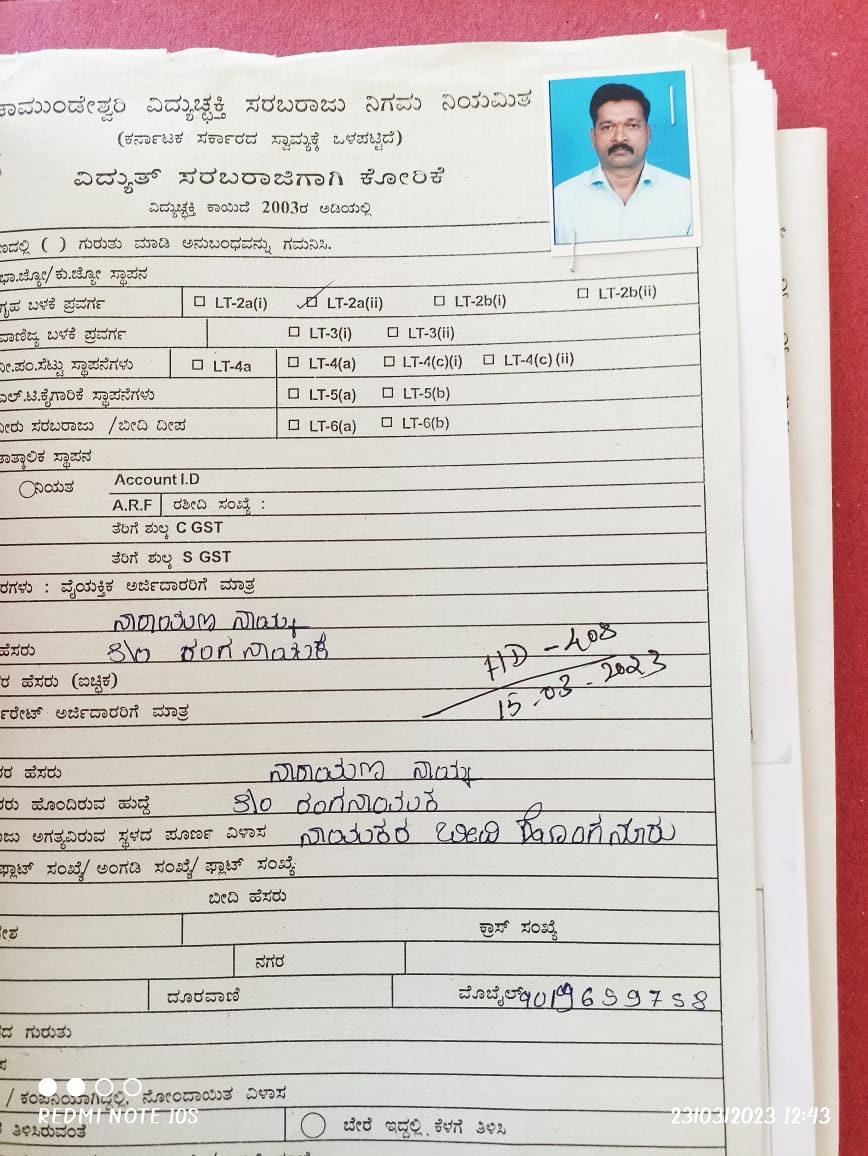 ಚಾಮುಂಡೇಶ್ವರಿ ವಿದ್ಯುಚ್ಛಕ್ತಿ ಸರಬರಾಜು ನಿಗಮ ನಿಯಮಿತ
(ಕರ್ನಾಟಕ ಸರ್ಕಾರದ ಸ್ವಾಮ್ಯಕ್ಕೆ ಒಳಪಟ್ಟಿದೆ)
ವಿದ್ಯುತ್ ಸರಬರಾಜಿಗಾಗಿ ಕೋರಿಕೆ
ವಿದ್ಯುಚ್ಛಕ್ತಿ ಕಾಯಿದೆ 2003ರ ಅಡಿಯಲ್ಲಿ
( ) ಗುರುತು ಮಾಡಿ ಅನುಬಂಧವನ್ನು ಗಮನಿಸಿ.
ಭಾ.ಜ್ಯೋ/ಕು.ಜ್ಯೋ ಸ್ಥಾಪನ
ಗೃಹ ಬಳಕೆ ಪ್ರವರ್ಗ LT-2a(i) LT-2a(ii) LT-2b(i) LT-2b(ii)
ವಾಣಿಜ್ಯ ಬಳಕೆ ಪ್ರವರ್ಗ LT-3(i) LT-3(ii)
ನೀ.ಪಂ.ಸೆಟ್ಟು ಸ್ಥಾಪನೆಗಳು LT-4a LT-4(a) LT-4(c)(i) LT-4(c)(ii)
ಎಲ್.ಟಿ.ಕೈಗಾರಿಕೆ ಸ್ಥಾಪನೆಗಳು LT-5(a) LT-5(b)
ನೀರು ಸರಬರಾಜು /ಬೀದಿ ದೀಪ LT-6(a) LT-6(b)
ತಾತ್ಕಾಲಿಕ ಸ್ಥಾಪನ
ನಿಯತ Account I.D
A.R.F ರಶೀದಿ ಸಂಖ್ಯೆ :
ತೆರಿಗೆ ಶುಲ್ಕ C GST
ತೆರಿಗೆ ಶುಲ್ಕ S GST
: ವೈಯಕ್ತಿಕ ಅರ್ಜಿದಾರರಿಗೆ ಮಾತ್ರ
ನಾರಾಯಣ ನಾಯ್ಕ
ಹೆಸರು S/o ರಂಗನಾಯಕ
HD - 408
ಹೆಸರು (ಐಚ್ಛಿಕ)
15-03-2023
ಅರ್ಜಿದಾರರಿಗೆ ಮಾತ್ರ
ಹೆಸರು ನಾರಾಯಣ ನಾಯ್ಕ
ಹೊಂದಿರುವ ಹುದ್ದೆ S/o ರಂಗನಾಯಕ
ಅಗತ್ಯವಿರುವ ಸ್ಥಳದ ಪೂರ್ಣ ವಿಳಾಸ ನಾಯಕರ ಬೀದಿ ಹೊಂಗನೂರು
ಫ್ಲಾಟ್ ಸಂಖ್ಯೆ/ ಅಂಗಡಿ ಸಂಖ್ಯೆ/ ಫ್ಲಾಟ್ ಸಂಖ್ಯೆ
ಬೀದಿ ಹೆಸರು
ಕ್ರಾಸ್ ಸಂಖ್ಯೆ
ನಗರ
ದೂರವಾಣಿ ಮೊಬೈಲ್
ಗುರುತು
/ ಕಂಪನಿಯಾಗಿದ್ದಲ್ಲಿ, ನೋಂದಾಯಿತ ವಿಳಾಸ
REDMI NOTE 10S 23/03/2023 12:43
ತಿಳಿಸಿರುವಂತೆ ಬೇರೆ ಇದ್ದಲ್ಲಿ, ಕೆಳಗೆ ತಿಳಿಸಿ